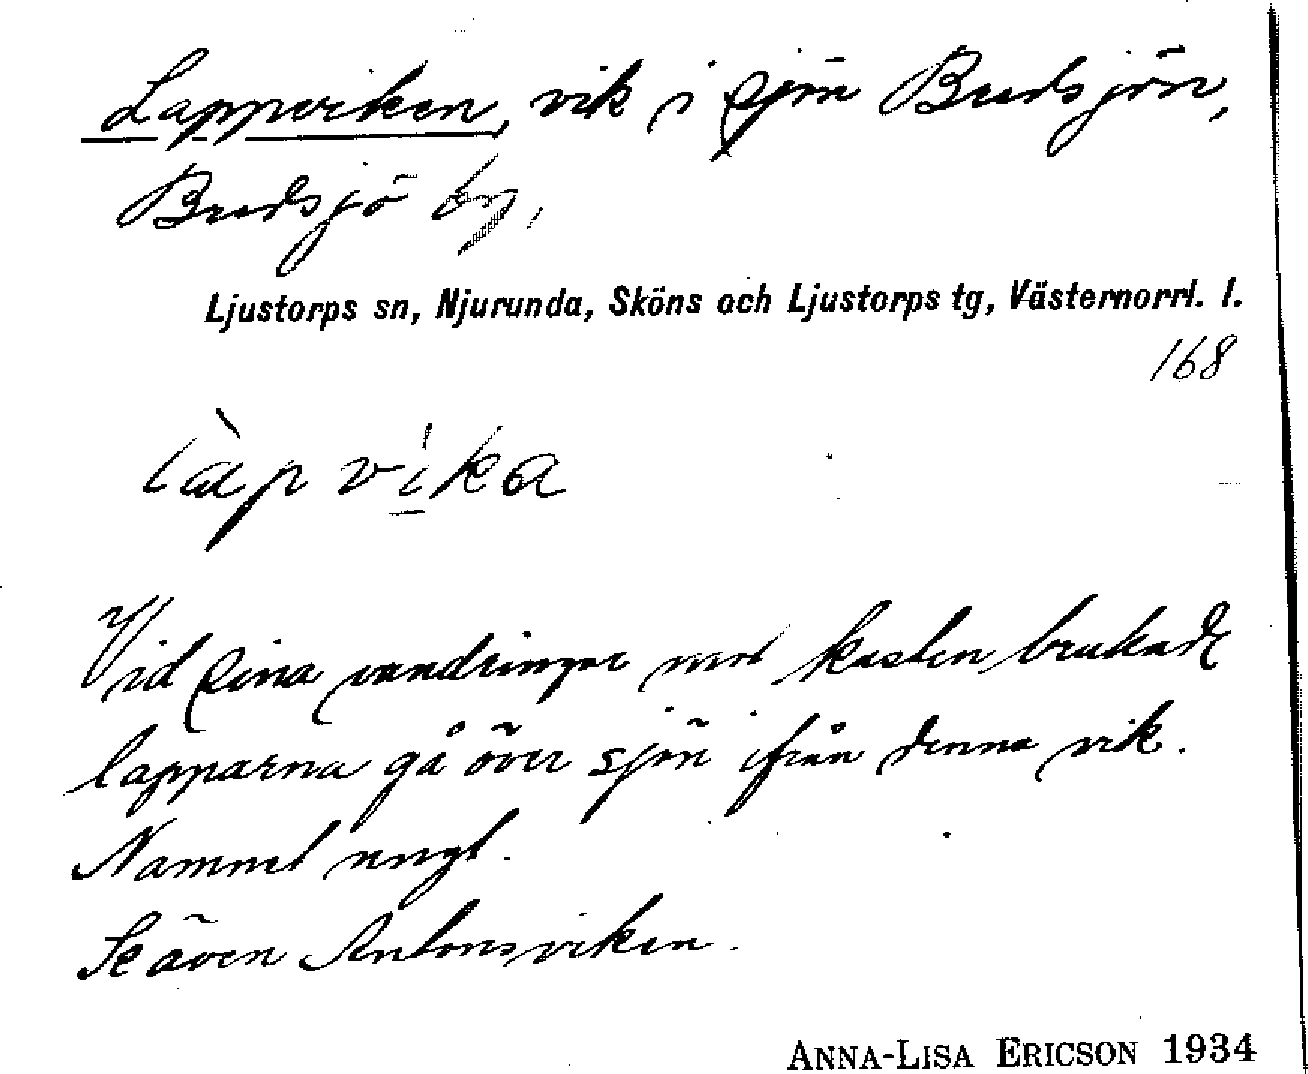 Lappviken, vik i sjön Bredsjön,
Bredsjö by,
Ljustorps sn, Njurunda, Sköns och Ljustorps tg, Västernorrl. l.
168
làpvika
Vid sina vandringar mot kusten brukade
lapparna gå över sjön ifrån denna vik.
Namnet ungt.
Se även Antonsviken.
ANNA-LISA ERICSON 1934